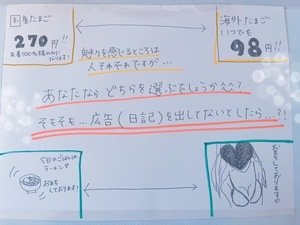 国産たまご
270円!!
海外たまご
いつでも
98円!!
魅力を感じるところは
人それぞれですが…
あなたなら どちらを選ぶでしょうか^^?
そもそも…広告(日記)を出してないとしたら…?!
今日のごはんは
ラーメン
お待ち
しております!
お待ちしております